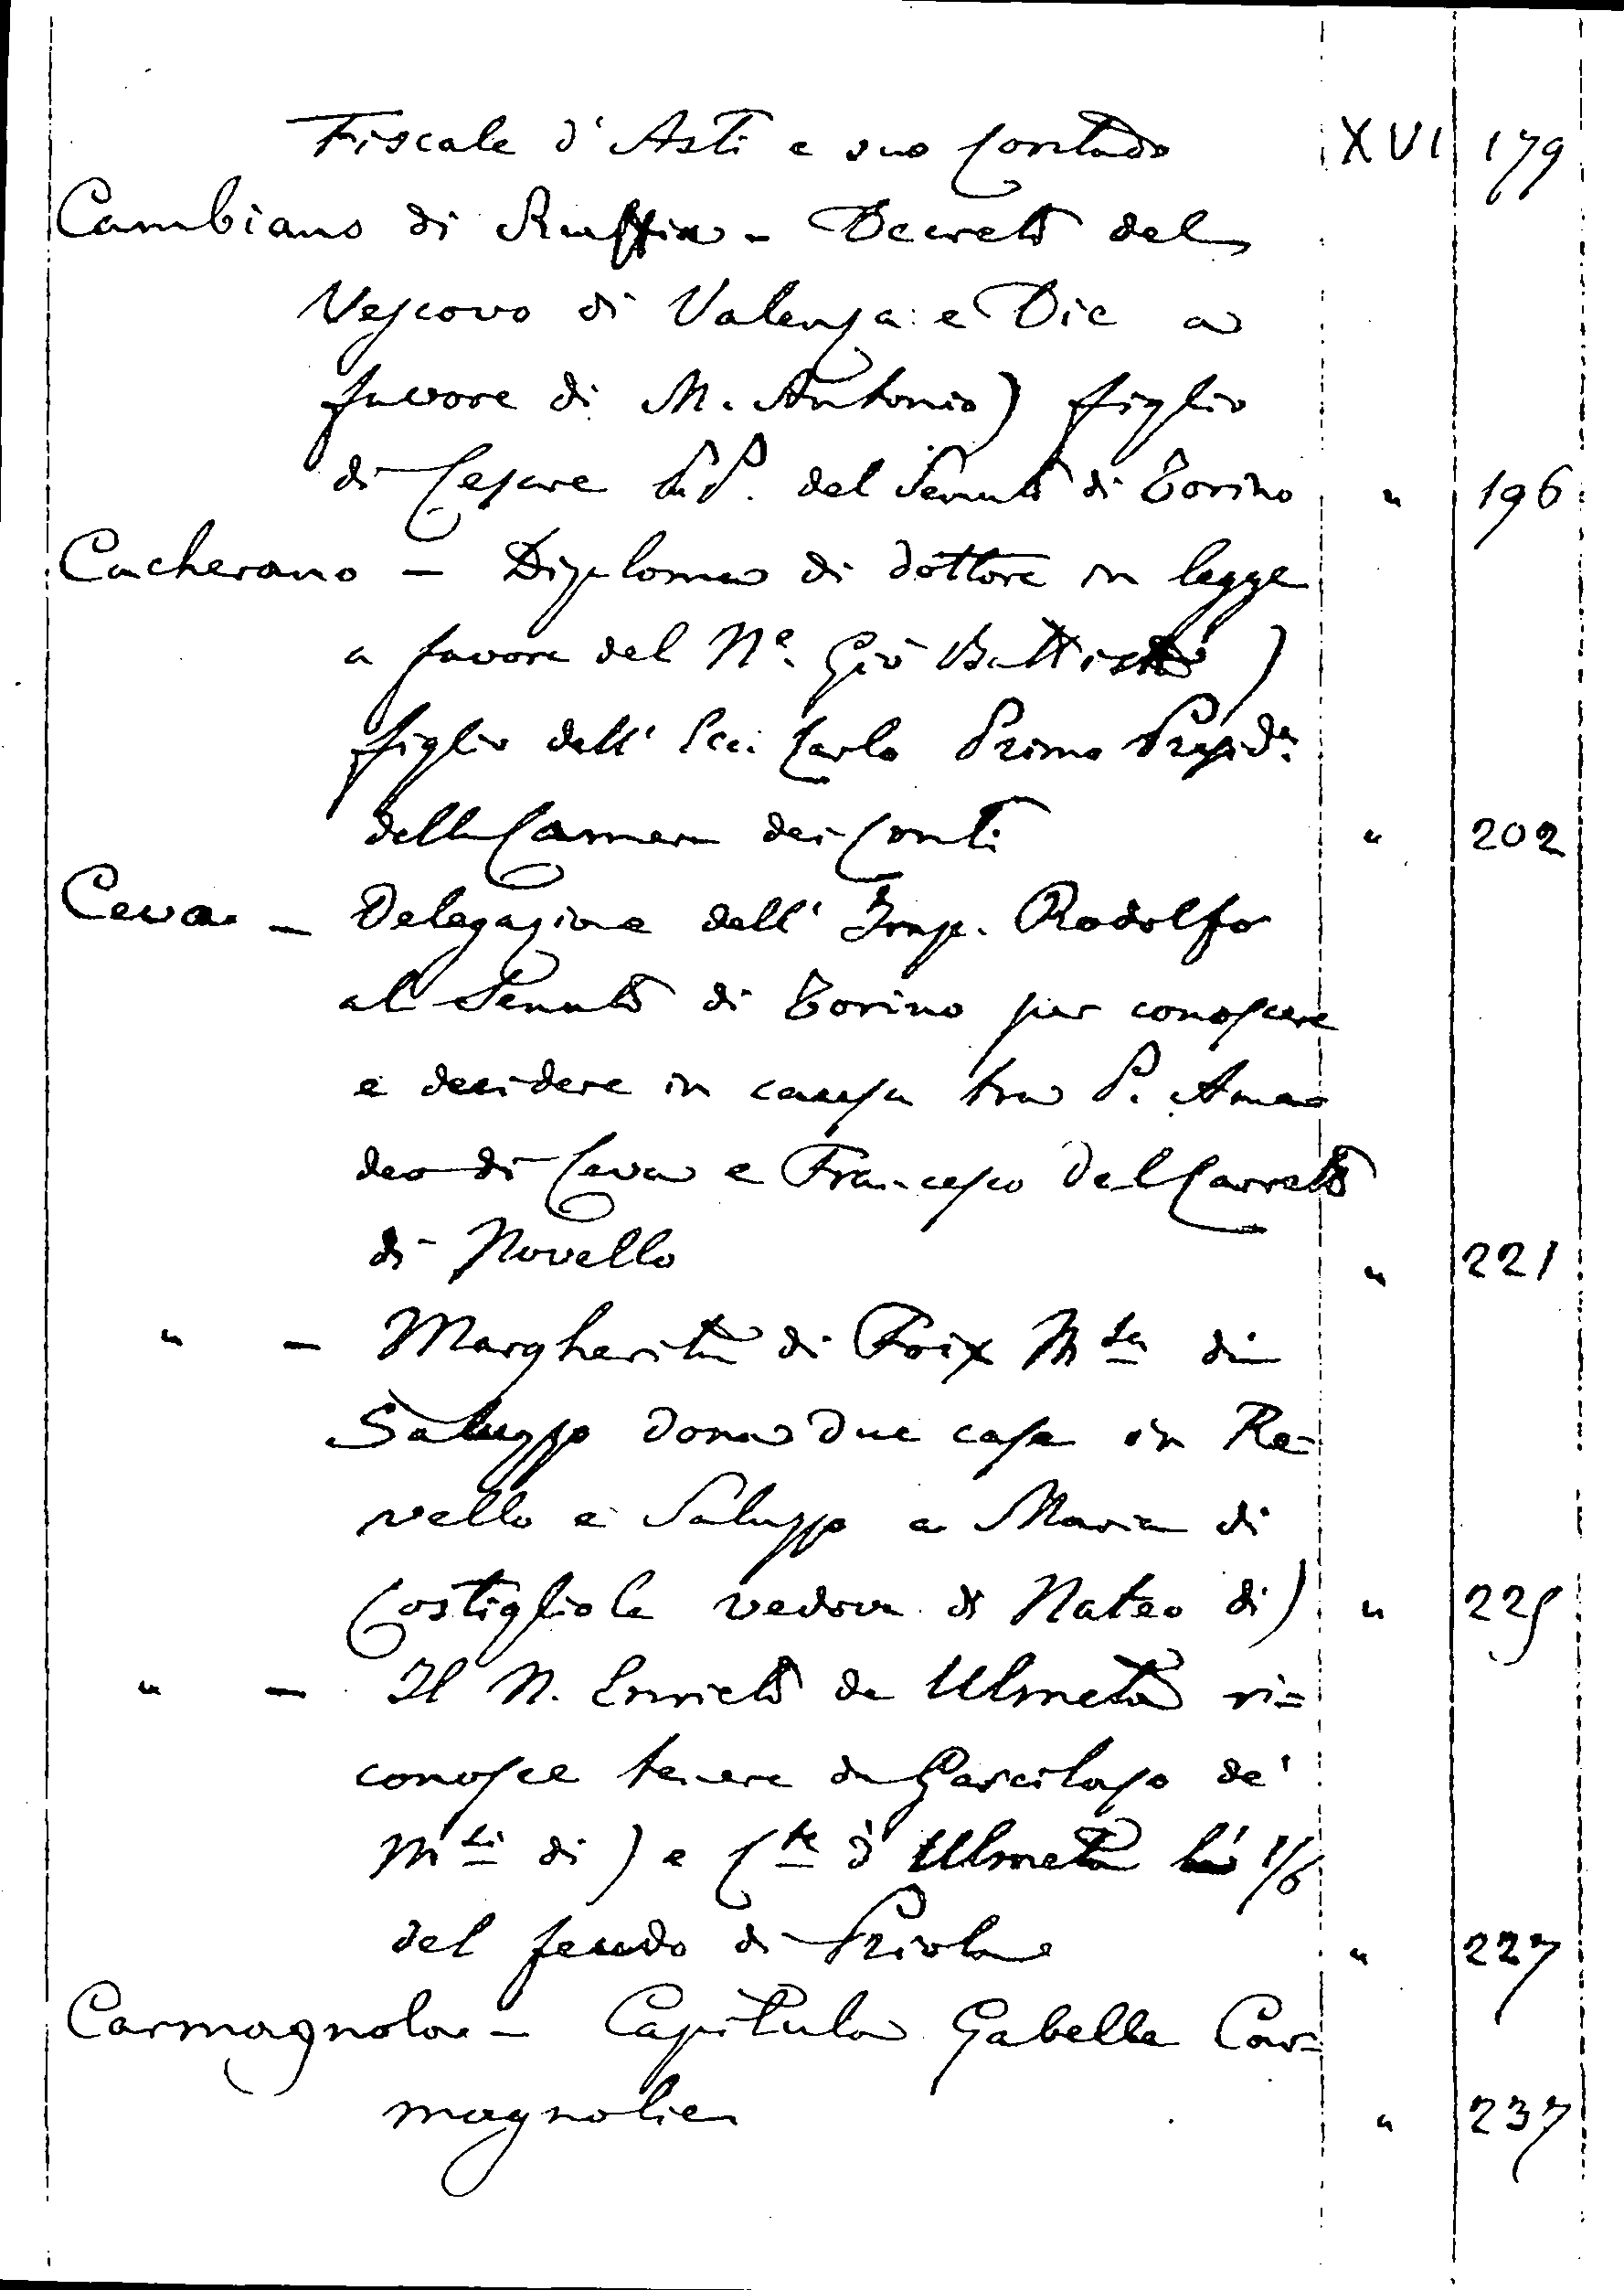 Fiscale d'Asti e suo Contado XVI 179
Cambiano di Ruffia - Decreto del
Vescovo di Valenza e Die a
favore di M. Antonio) figlio
di Cesare P. del Senato di Torino " 196
Cacherano - Diploma di dottore in legge
a favore del Ne. Gio Battista)
figlio dell' Ecc. Carlo Primo Presid.
della Camera dei Conti " 202
Ceva - Delegazione dell' Imp. Rodolfo
al Senato di Torino per conoscere
e decidere in causa tra P. Ama
deo di Ceva e Francesco Del Carretto
di Novello " 221
" - Margherita di Foix Msa di
Saluzzo dona due case in Re-
vello e Saluzzo a Maria di
Costigliole vedova di Mateo di) " 225
" - Il N. Enrieto de Ulmeta ri=
conosce tenere da Garcilaso de'
Msi di) e Cte d' Ulmeta 1/6
del feudo di Priola " 227
Carmagnola - Capitula Gabelle Car=
magnolie " 237